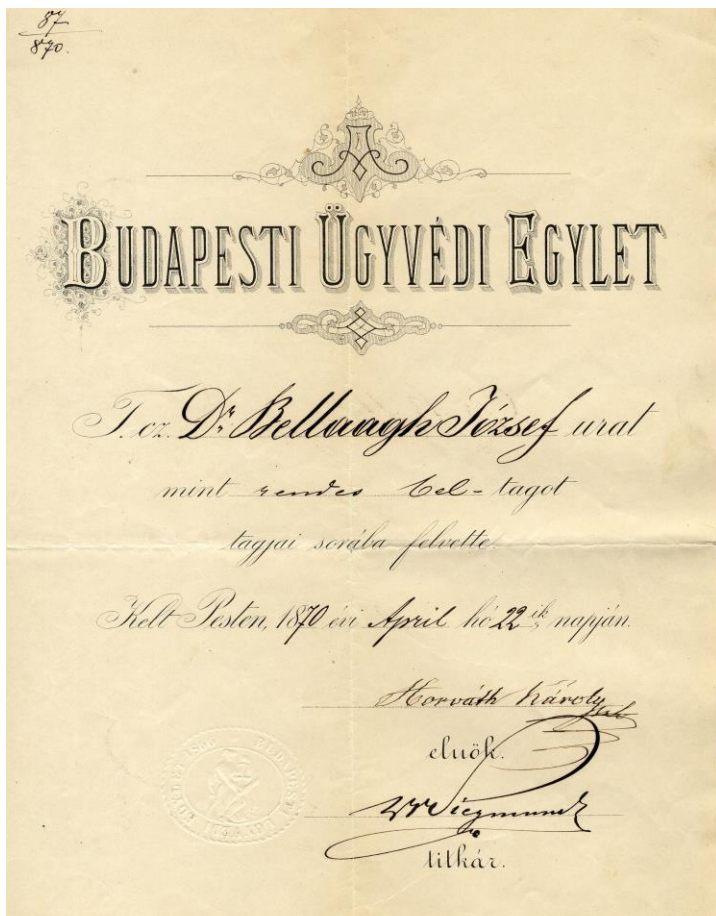 87
870.
A
BUDAPESTI ÜGYVÉDI EGYLET
T. cz. Dr. Bellaagh József urat
mint rendes bel-tagot
tagjai sorába felvette.
Kelt Pesten, 1870 évi April hó 22ik napján.
Horváth Károly
elnök.
titkár.
BUDAPESTI ÜGYVÉDI EGYLET 1866